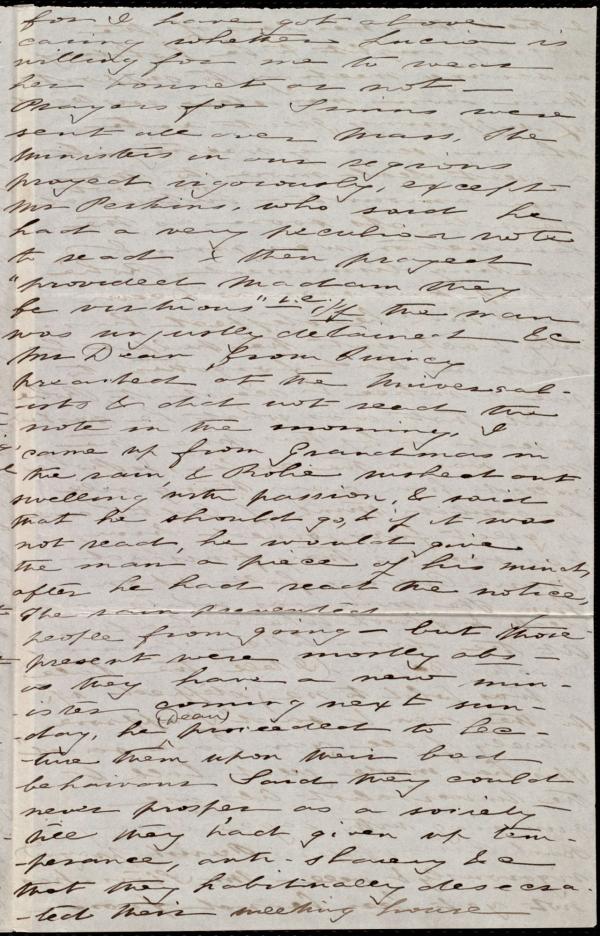 for I have got above
caring whether Lucia is
willing for me to wear
her bonnet or not —
Prayers for Simms were
sent all over Mass. The
ministers in our regions
prayed vigorously, except
Mr Perkins, who said he
had a very peculiar note
to read & then prayed
"provided Madam they
be virtuous" — i.e. if the man
was unjustly detained &c
Mr Dean from Quincy
preached at the Universal-
-ists & did not read the
note in the morning. I
came up from Grandmas in
the rain, & rushed out
swelling with passion, & said
that he should go, & if it was
not read, he would give
the man a piece of his mind,
after he had read the notice,
The rain prevented
people from going — but those
present were mostly abs —
as they have a new min-
-ister coming next sun-
-day, he (Dean) proceeded to lec-
-ture them upon their bad
behaviour Said they could
never prosper as a society
till they had given up tem-
-perance, anti-slavery &c
that they habitually desecra-
-ted their meeting house